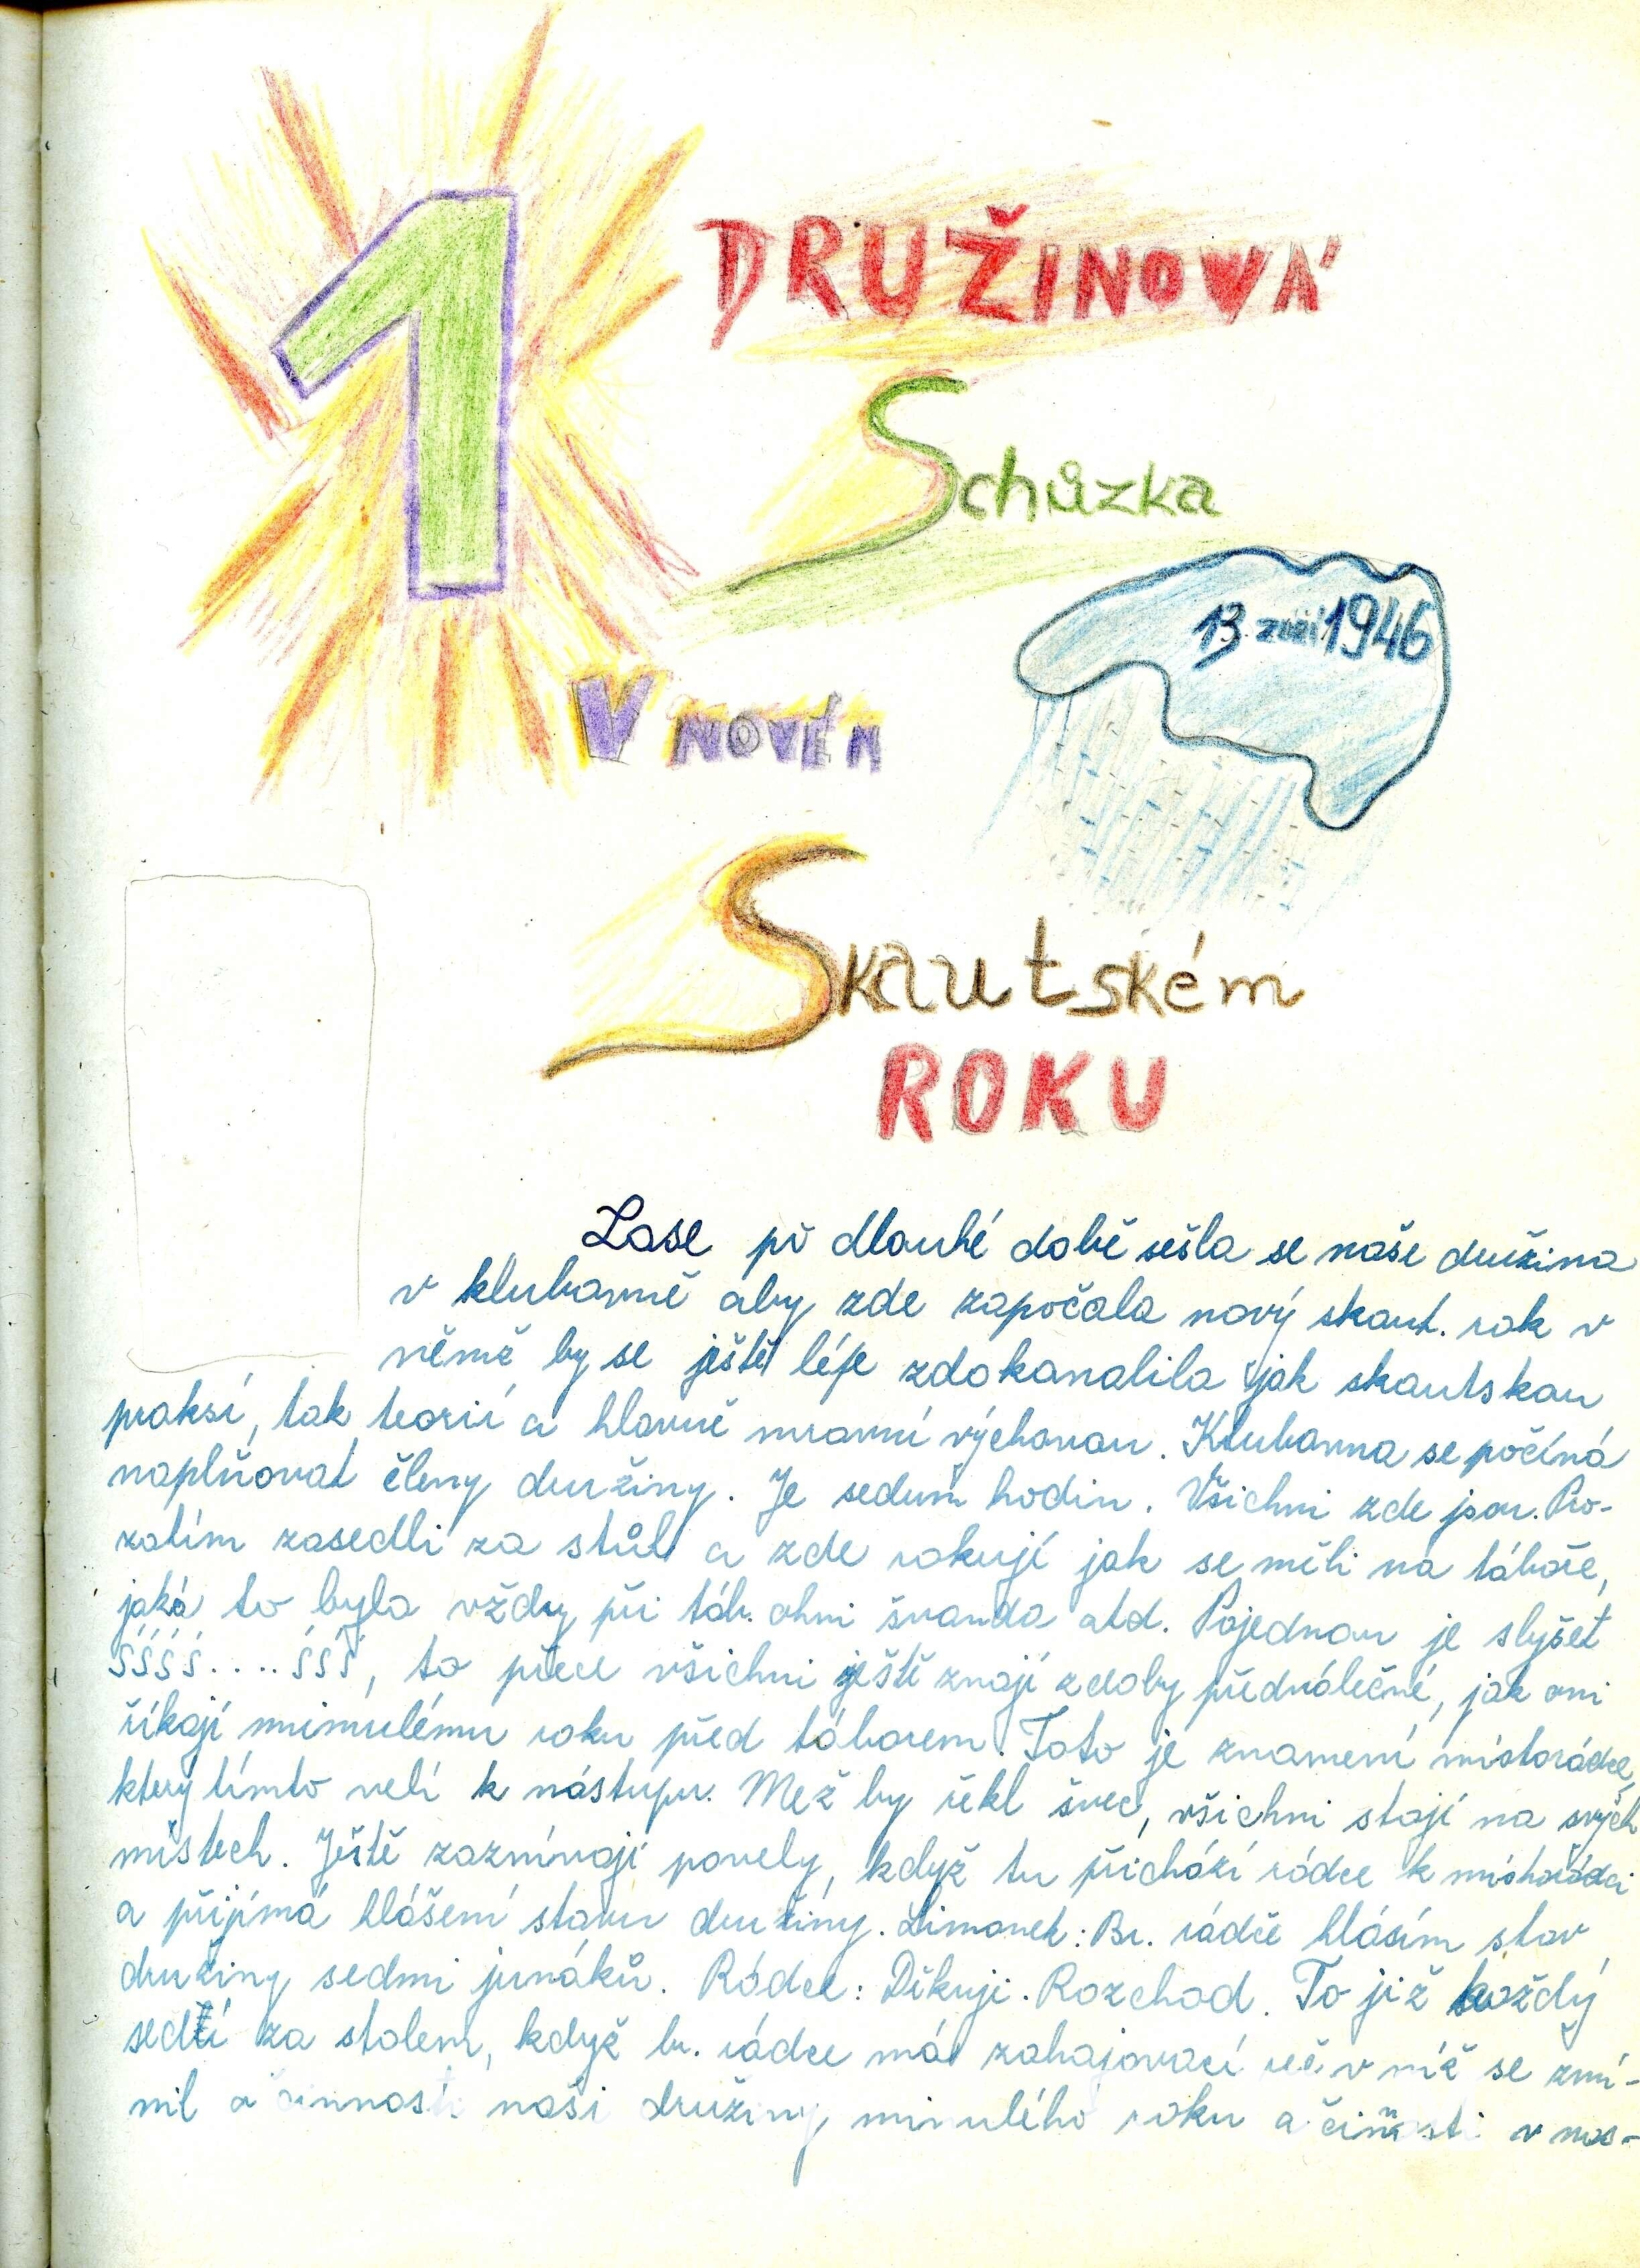 1 DRUŽINOVÁ
Schůzka
13. září 1946
V NOVÉM
Skautském
ROKU
Zase po dlouhé době sešla se naše družina
v klubovně aby zde započala nový skaut. rok v
němž by se ještě lépe zdokonalila jak skautskou
praksí, tak teorií a hlavně mravní výchovou. Klubovna se počíná
naplňovat členy družiny. Je sedum hodin. Všichni zde jsou. Pro-
zatím zasedli za stůl a zde rokují jak se měli na táboře,
jaká to byla vždy při táb. ohni švanda atd. Pojednou je slyšet
śśśś....śśś, to přece všichni ještě znají z doby předválečné, jak oni
říkají minulému roku před táborem. Toto je znamení místorádce,
který tímto velí k nástupu. Než by řekl švec, všichni stojí na svých
místech. Ještě zaznívají povely, když tu přichází rádce k místorádci
a přijímá hlášení stavu družiny. Limonek: Br. rádče hlásím stav
družiny sedmi junáků. Rádce: Děkuji. Rozchod. To již každý
sedí za stolem, když br. rádce má zahajovací řeč v níž se zmí-
nil o činnosti naší družiny minulého roku a činnosti v nas-